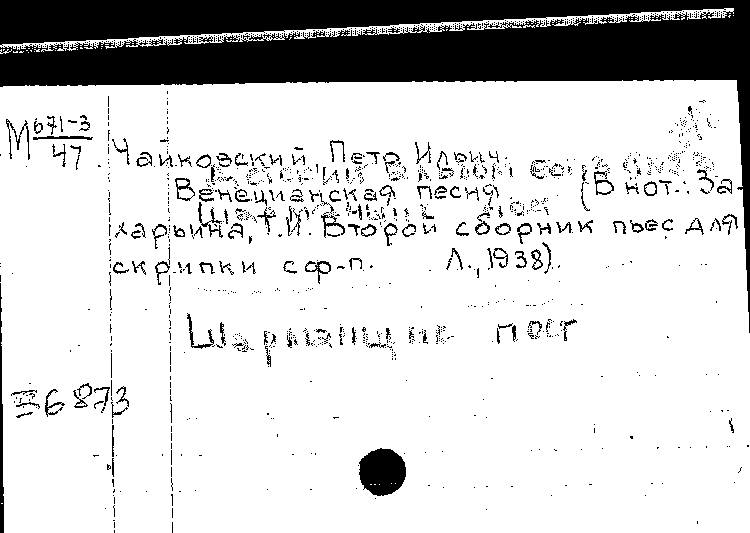 М 671-3
47
Чайковский, Петр Ильич.
Детский альбом
Венецианская песня (В нот.: За-
харьина, Т.И. Второй сборник пьес для
скрипки с ф-п. Л., 1938).
Шарманщик поет
36873